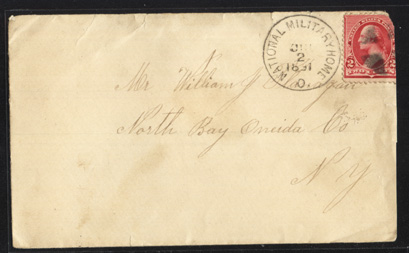 NATIONAL MILITARY HOME O.
2
1891
2 2
Mr William J
North Bay Oneida Co
N Y